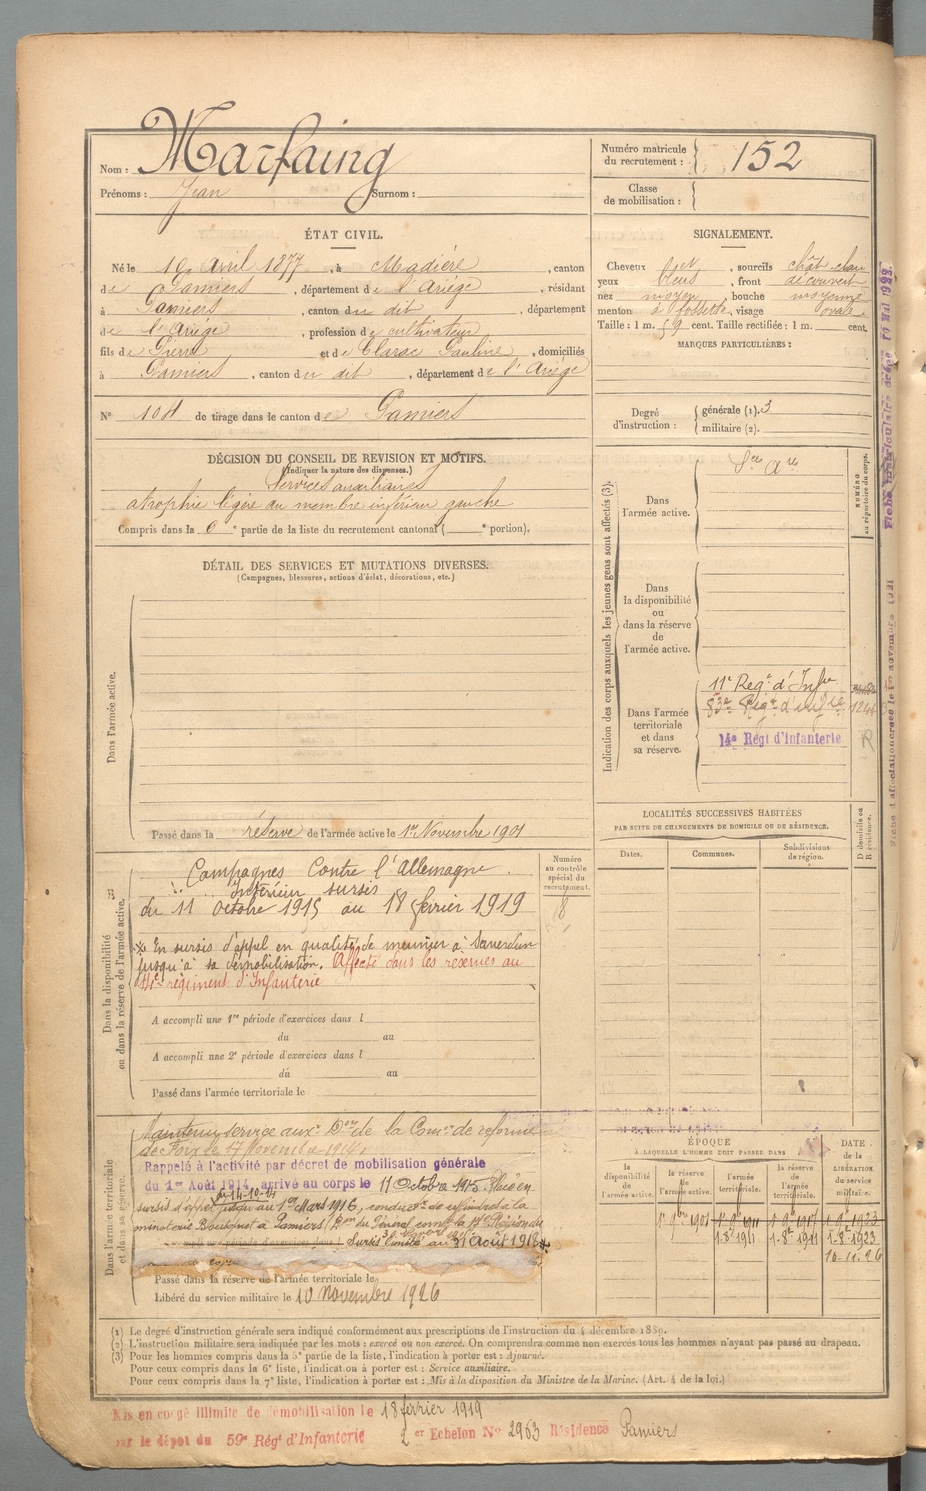 Nom : Marfaing
Prénoms : Jean Surnom :
Numéro matricule du recrutement : 152
Classe de mobilisation :
ÉTAT CIVIL.
Né le 10 avril 1877, à Madière, canton
de Pamiers, département de l'Ariège, résidant
à Pamiers, canton du dit, département
de l'Ariège, profession de cultivateur
fils de Pierre et de Clarac Pauline, domiciliés
à Pamiers, canton du dit, département de l'Ariège
N° 108 de tirage dans le canton de Pamiers
SIGNALEMENT.
Cheveux et, sourcils chât. clair
yeux bleus, front découvert
nez moyen, bouche moyenne
menton à fossette, visage ovale
Taille : 1 m. 59 cent. Taille rectifiée : 1 m. cent.
MARQUES PARTICULIÈRES :
Degré d'instruction : générale (1). 3
militaire (2).
DÉCISION DU CONSEIL DE REVISION ET MOTIFS.
(Indiquer la nature des dispenses.)
Services auxiliaires
atrophie légère du membre inférieur gauche
Compris dans la 6e partie de la liste du recrutement cantonal ( e portion).
DÉTAIL DES SERVICES ET MUTATIONS DIVERSES.
(Campagnes, blessures, actions d'éclat, décorations, etc.)
Dans l'armée active.
Passé dans la réserve de l'armée active le 1er Novembre 1901
Indication des corps auxquels les jeunes gens sont affectés (3).
NUMÉRO au répertoire du corps.
Dans l'armée active.
Dans la disponibilité ou dans la réserve de l'armée active.
Dans l'armée territoriale et dans sa réserve.
11e Regt d'Infie
83e Regt d'infie
14e Régt d'Infanterie
LOCALITÉS SUCCESSIVES HABITÉES
PAR SUITE DE CHANGEMENTS DE DOMICILE OU DE RÉSIDENCE.
Dates. Communes. Subdivisions de région. D domicile ou R résidence.
Dans la disponibilité ou dans la réserve de l'armée active.
Numéro au contrôle spécial du recrutement.
8
Campagnes Contre l'Allemagne.
Intérieur sursis
du 11 octobre 1915 au 18 février 1919
※ En sursis d'appel en qualité de meunier à Saverdun
jusqu'à sa démobilisation. Affecté dans les réserves au
14e régiment d'Infanterie
A accompli une 1re période d'exercices dans l
du au
A accompli une 2e période d'exercices dans l
du au
Passé dans l'armée territoriale le
Dans l'armée territoriale et dans sa réserve.
Maintenu service auxre Don de la Comon de réforme
de Foix le 17 Novembre 1914
Rappelé à l'activité par décret de mobilisation générale
du 1er Août 1914, arrivé au corps le 11 Octobre 1915. Placé en
sursis d'appel du 14-10-15 jusqu'au 1er Mars 1916, conducteur de cylindre à la
minoterie Bousquet à Pamiers
Sursis limité au 31 Août 1918
Passé dans la réserve de l'armée territoriale le
Libéré du service militaire le 10 novembre 1926
ÉPOQUE
À LAQUELLE L'HOMME DOIT PASSER DANS
la disponibilité de l'armée active. la réserve de l'armée active. l'armée territoriale. la réserve de l'armée territoriale.
DATE de la LIBÉRATION du service militaire.
1er 9bre 1901 1-9-1911 1-9-1917 1-9-1923
1-8-1911 1-8-1911 1-8-1923
10-11-26
(1) Le degré d'instruction générale sera indiqué conformément aux prescriptions de l'instruction du 4 décembre 1889.
(2) L'instruction militaire sera indiquée par les mots : exercé ou non exercé. On comprendra comme non exercés tous les hommes n'ayant pas passé au drapeau.
(3) Pour les hommes compris dans la 5e partie de la liste, l'indication à porter est : Ajourné.
Pour ceux compris dans la 6e liste, l'indication à porter est : Service auxiliaire.
Pour ceux compris dans la 7e liste, l'indication à porter est : Mis à la disposition du Ministre de la Marine. (Art. 4 de la loi.)
Mis en congé illimité de démobilisation le 18 février 1919
par le dépôt du 59e Régt d'Infanterie 2er Echelon N° 2963 Résidence Pamiers